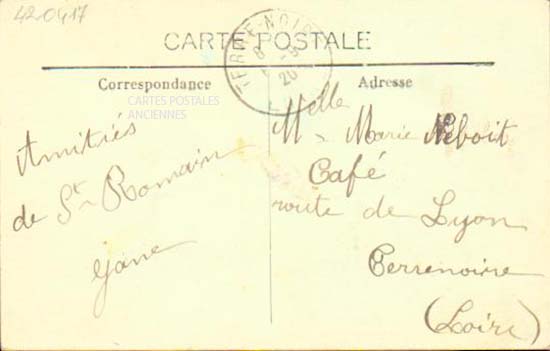 42-0417
CARTE POSTALE
TERRE-NOIRE
8-9
20
Correspondance
Adresse
CARTES POSTALES
ANCIENNES
Amitiés
de St Romain
Melle
M. Marie Neboit
Café
route de Lyon
Terrenoire
(Loire)